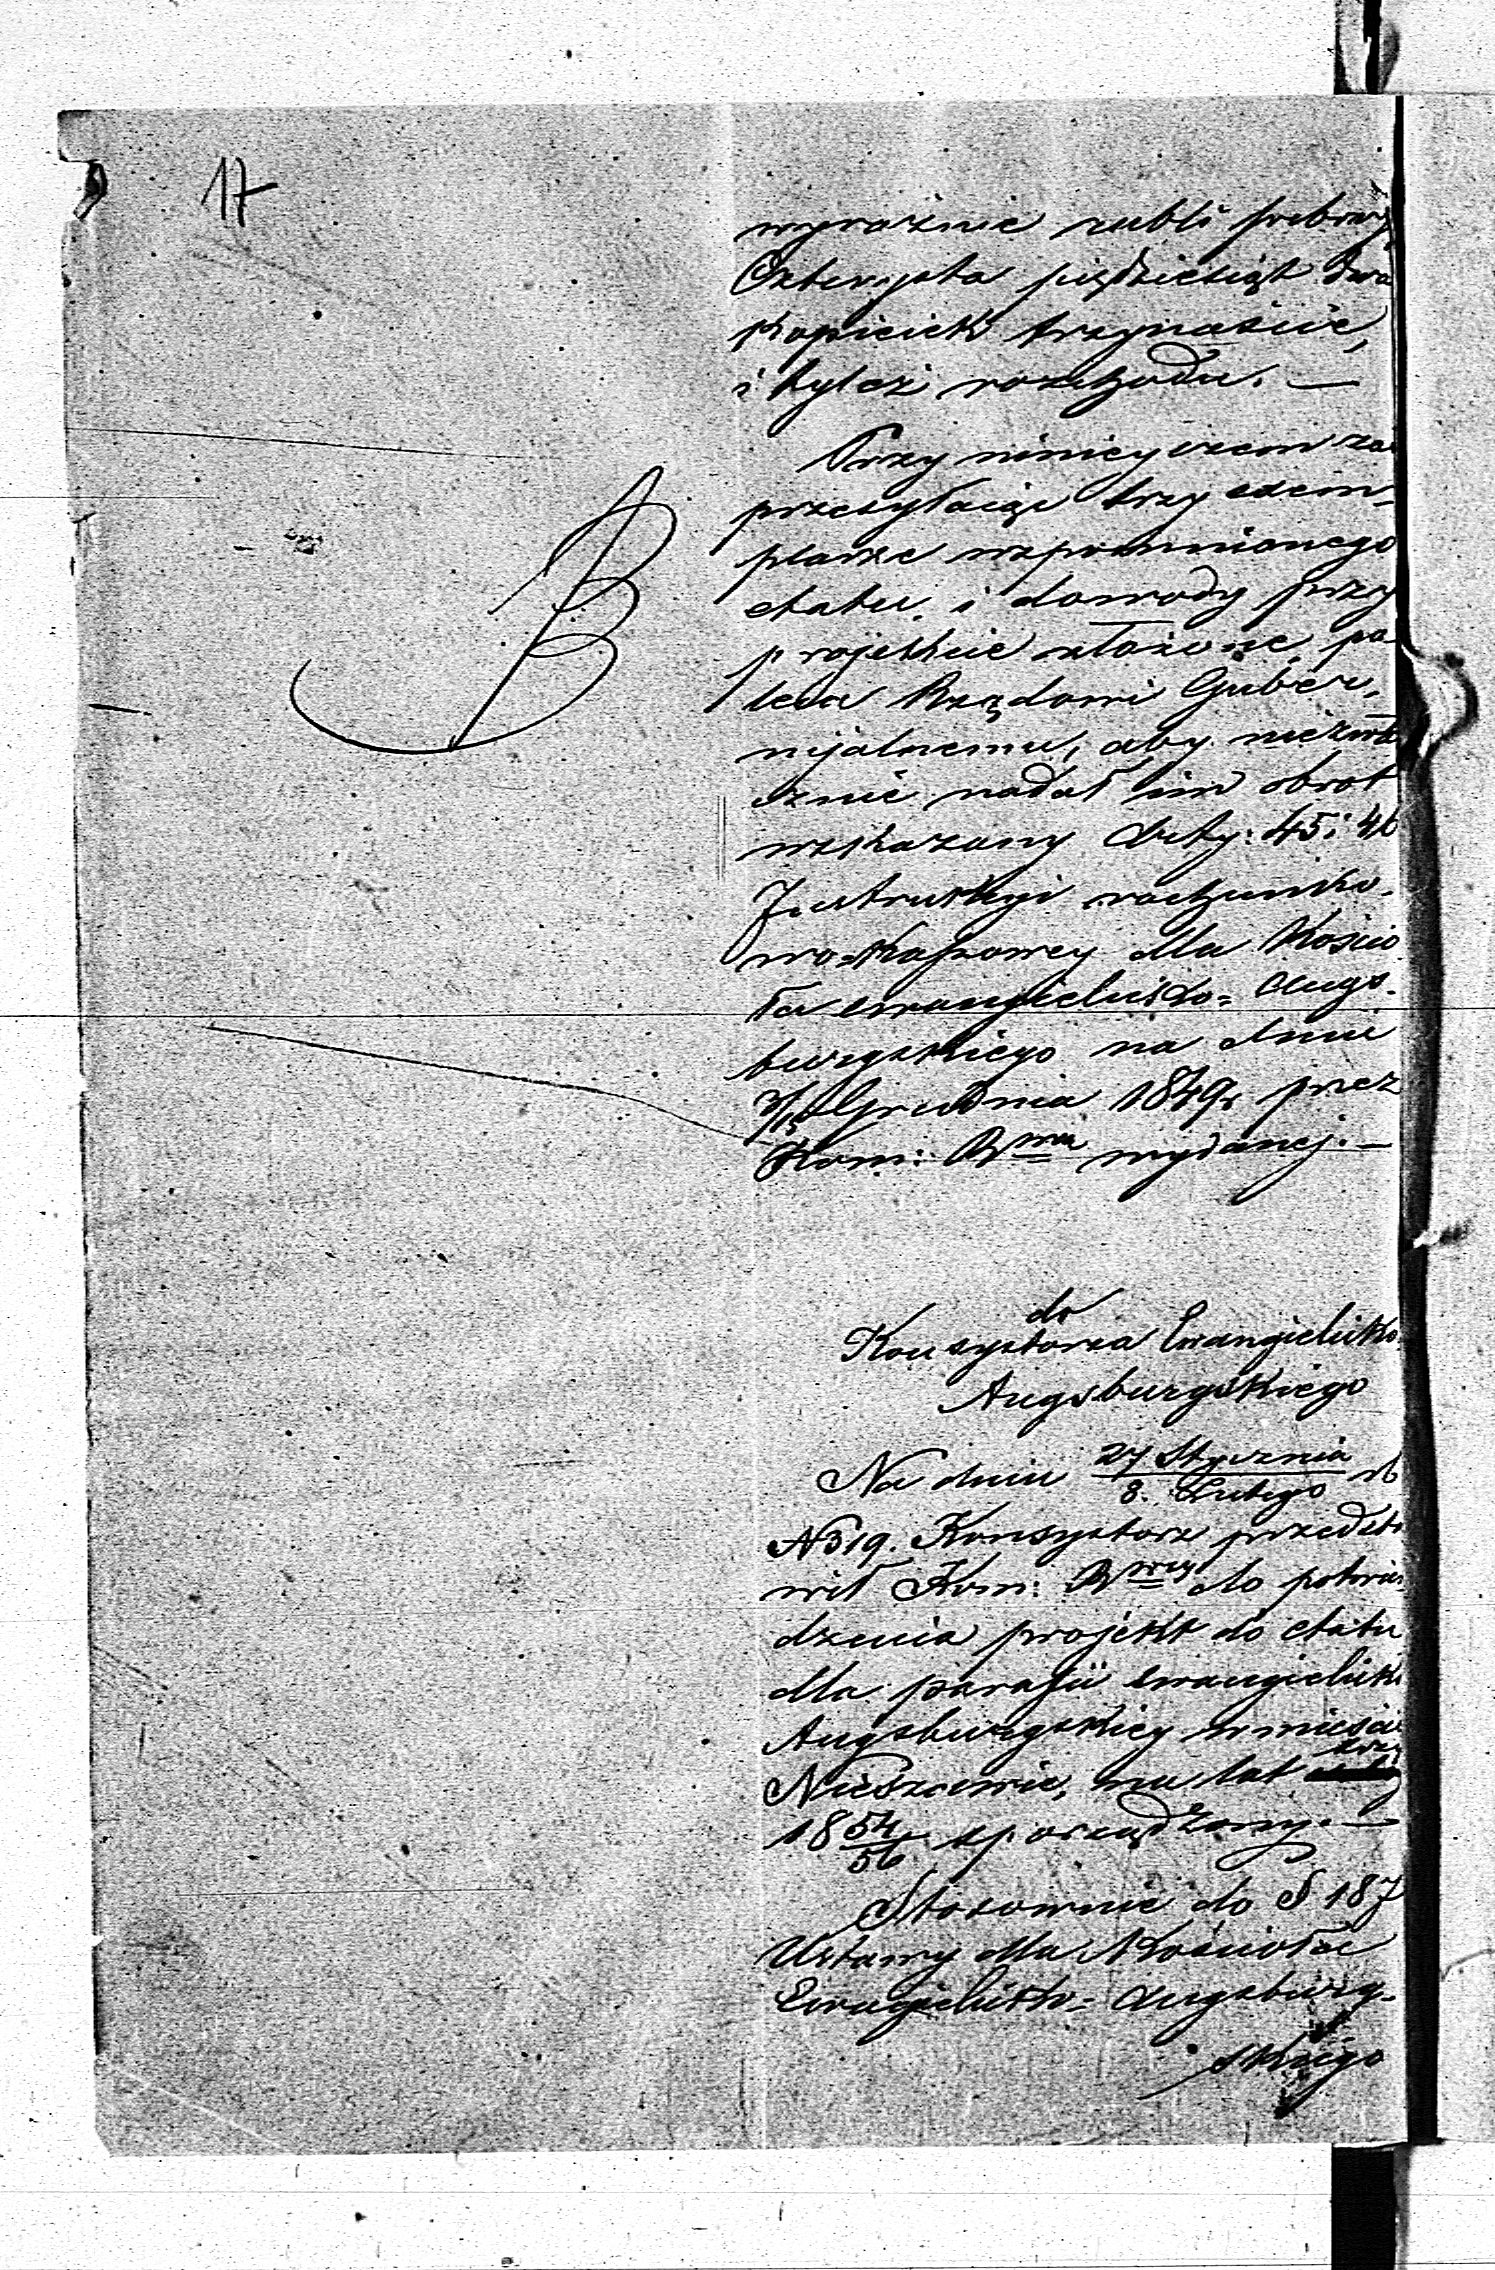 17
wyraźnie rubli srebrnych
Czterysta pięćdziesiąt dwa
kopieiek trzynaście,
i tyleż rozchodu. —
Przy niniejszem za
przesyłaiąc trzy exem-
plarze wspomnionego
etatu i dowody przy
projekcie złożone, po
leca Rządowi Guber-
nijalnemu, aby niezwło
cznie nadał im obrot
wskazany Arty: 45 i 46
Instrukcyi rachunko-
wo-kassowey dla Kościo
ła ewangielicko= Augs-
burgskiego na dniu
3/15 Grudnia 1849 r. przez
Kom: R wą wydanej. —
do
Konsystorza Ewangielicko
Augsburgskiego
Na dniu 27 Stycznia / 8. Lutego rb
N 319. Konsystorz przedsta
wił Kom: R wey do potwier
dzenia projekt do etatu
dla parafii ewangielicko
Augsburgskiey w mieście
Nieszawie, na lat trzy
18 54/56 sporządzony. —
Stosownie do § 187
Ustawy dla Kościoła
Ewangielicko= Augsburg-
skiego